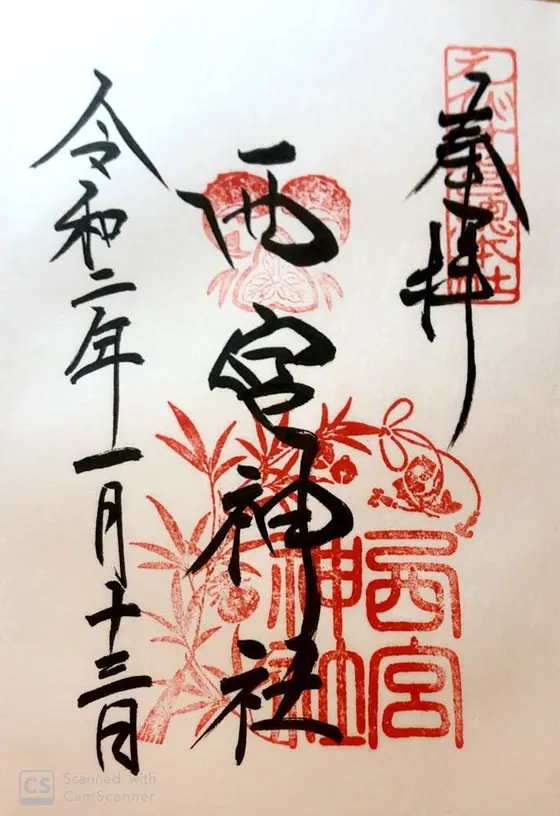 奉拝
西宮神社
令和二年一月十三日
西宮
神社
CS Scanned with
CamScanner